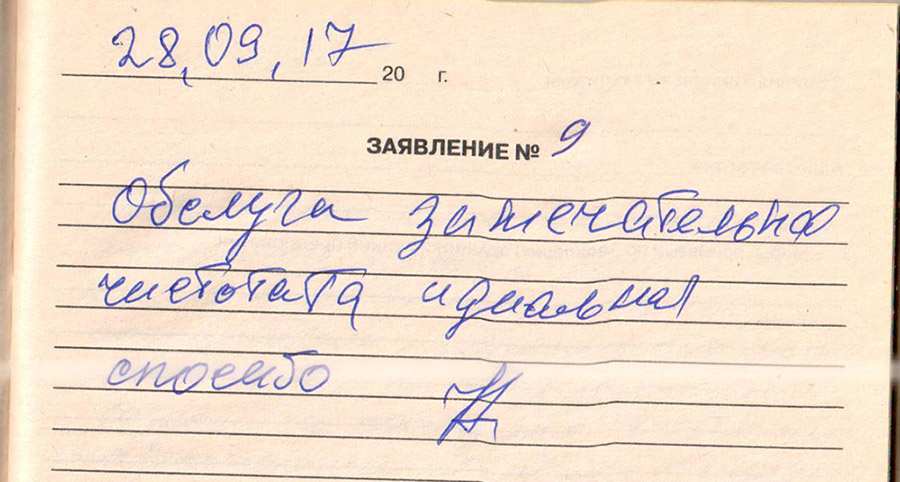 28,09,17 20 г.
ЗАЯВЛЕНИЕ № 9
Обслуга замечательная
чистотата идиальная
спосибо